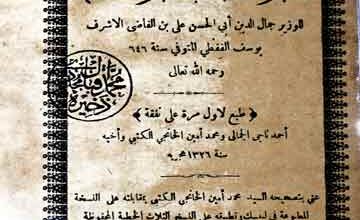 للوزير جمال الدين أبي الحسن على بن القاضى الاشرف
يوسف القفطي المتوفى سنة ٦٤٦
رحمه الله تعالى
﴿ طبع لاول مرة على نفقة ﴾
أحمد ناجى الجمالى ومحمد أمين الخانجى الكتبى وأخيه
سنة ١٣٢٦ هجرية
عنى بتصحيحه السيد محمد أمين الخانجى الكتبى بمقابلته على النسخة
المطبوعة فى ليبسك وتطبيقه على النسخ الثلاث الخطية المحفوظة